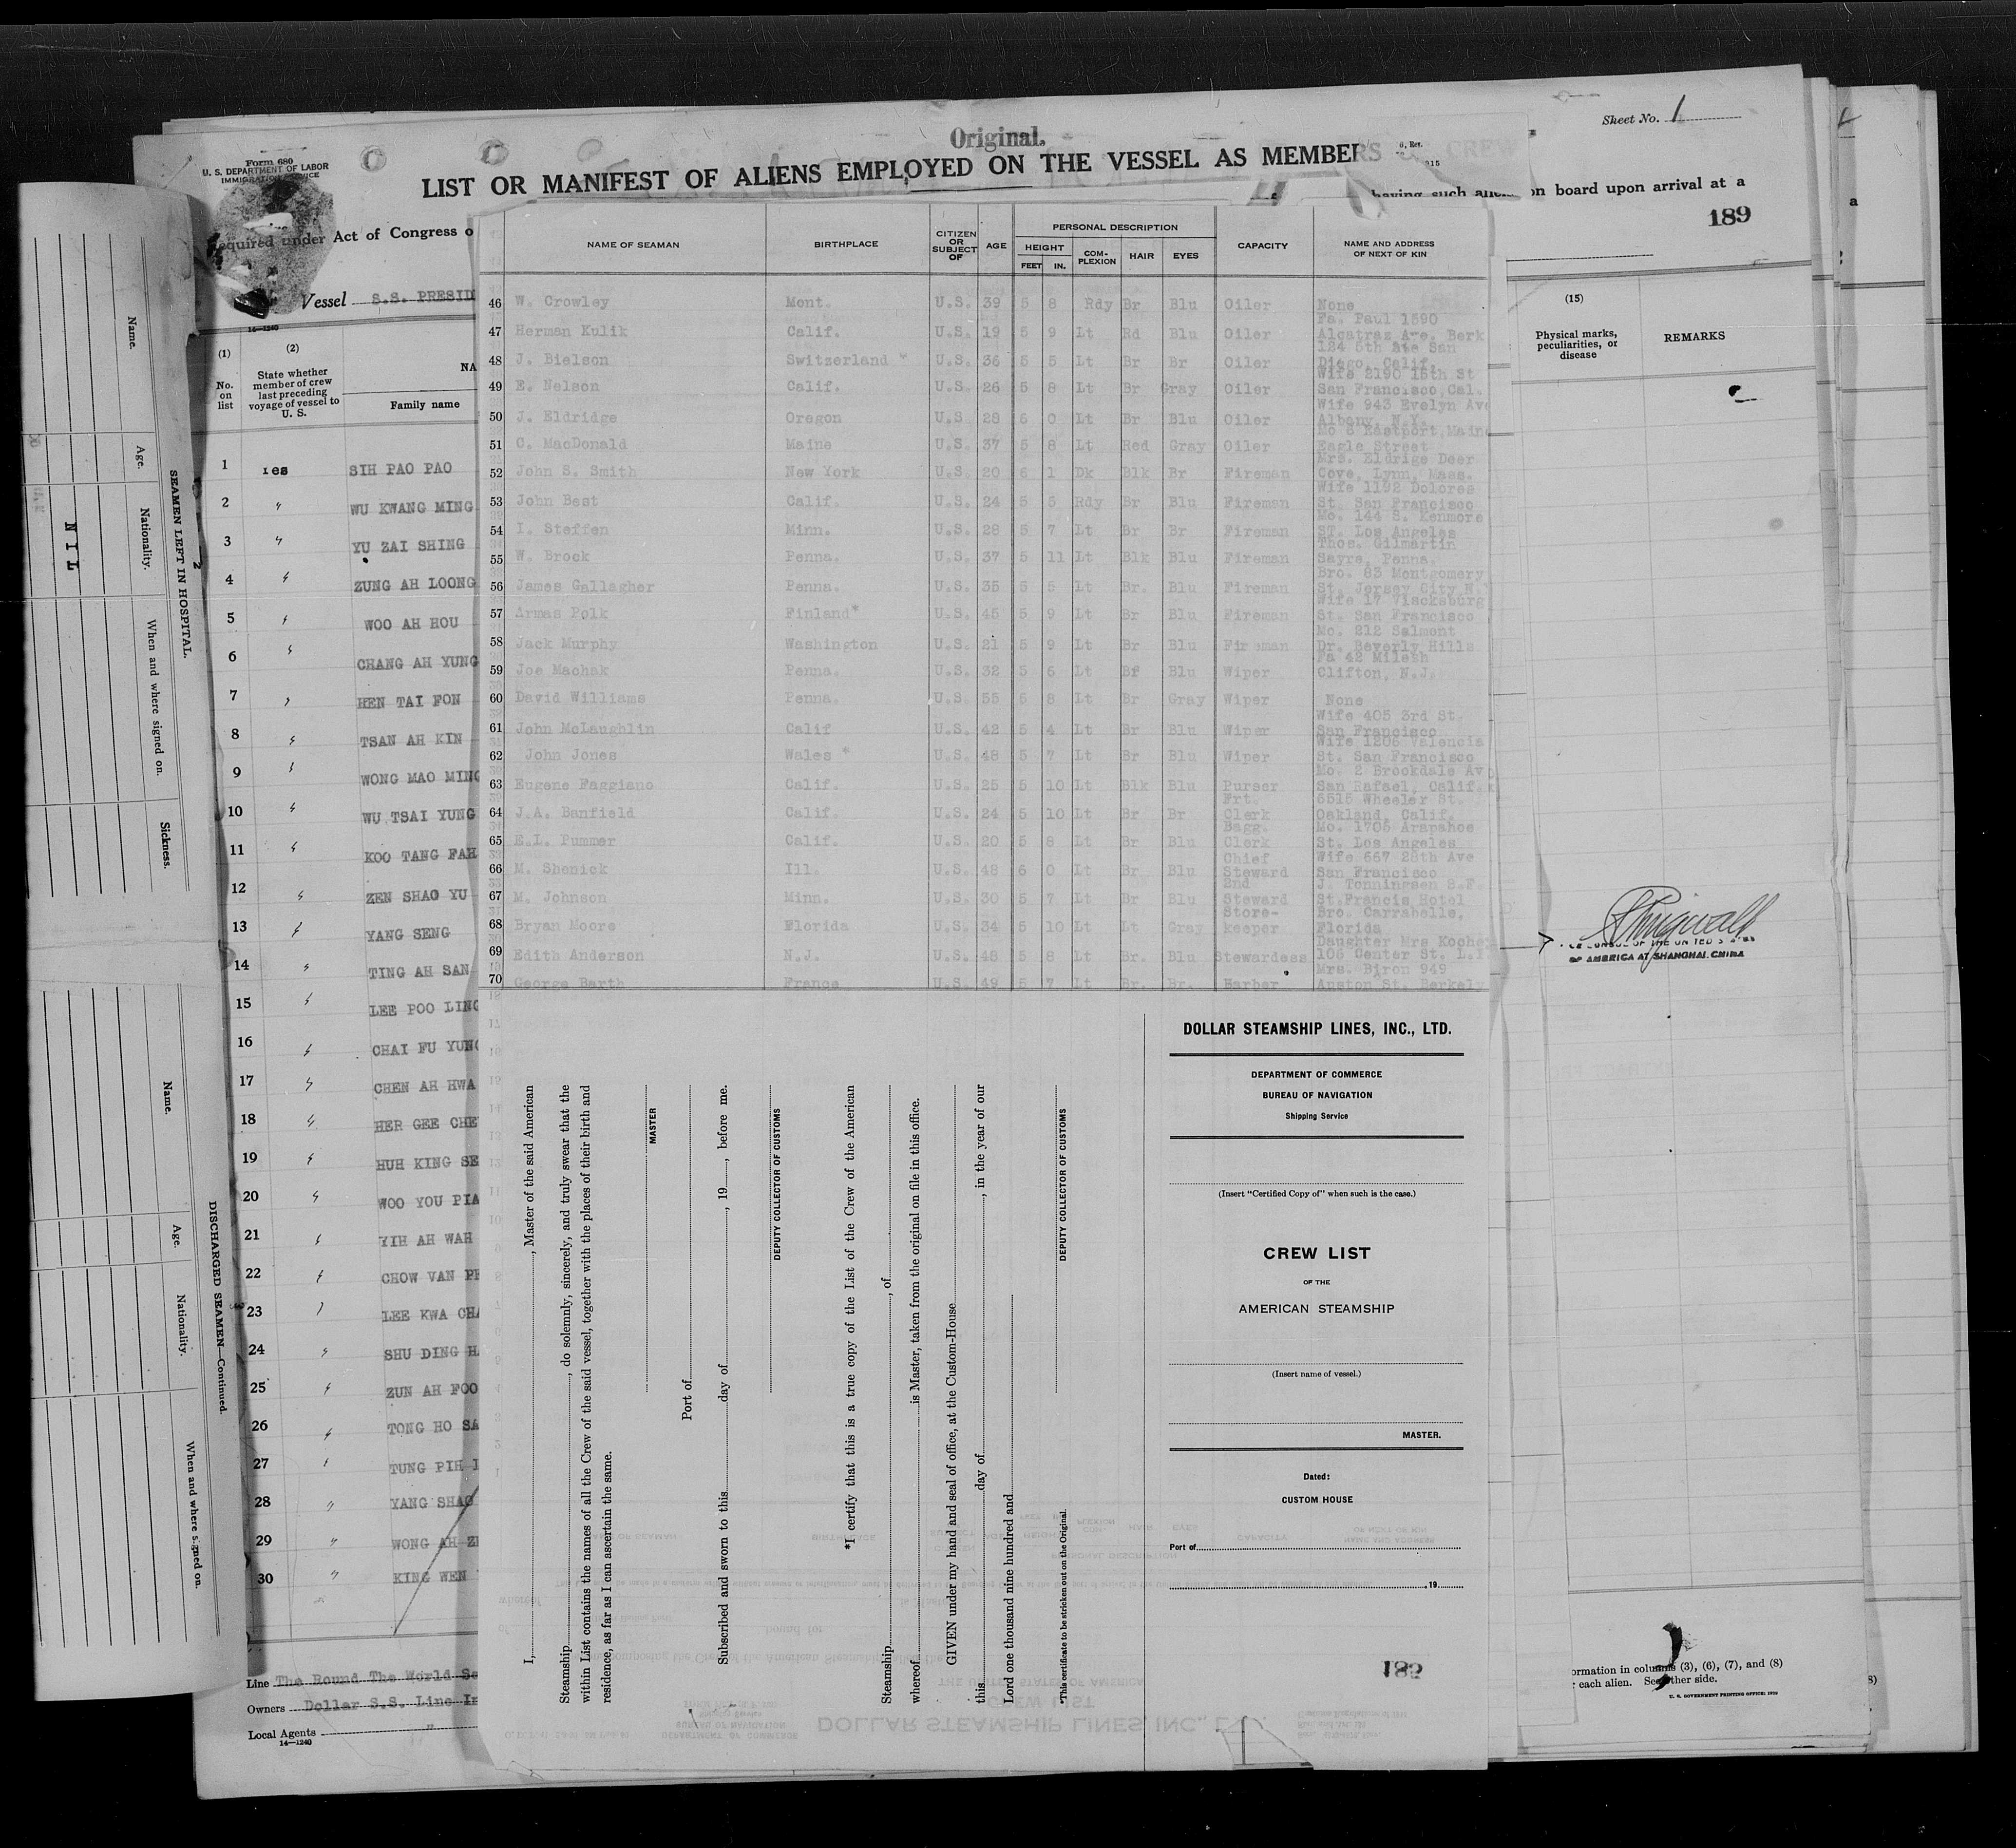 Original.
Form 680
U. S. DEPARTMENT OF LABOR
IMMIGRATION SERVICE
Sheet No. 1
LIST OR MANIFEST OF ALIENS EMPLOYED ON THE VESSEL AS MEMBERS OF CREW
having such aliens on board upon arrival at a
189
Required under Act of Congress o
Vessel S.S. PRESID
14-1240
(1) No. on list
(2) State whether member of crew last preceding voyage of vessel to U. S.
NA
Family name
1 Yes SIH PAO PAO
2 " WU KWANG MING
3 " YU ZAI SHING
4 " ZUNG AH LOONG
5 " WOO AH HOU
6 " CHANG AH YUNG
7 " HEN TAI FON
8 " TSAN AH KIN
9 " WONG MAO MING
10 " WU TSAI YUNG
11 " KOO TANG FAH
12 " ZEN SHAO YU
13 " YANG SENG
14 " TING AH SAN
15 " LEE POO LING
16 " CHAI FU YUNG
17 " CHEN AH HWA
18 " HER GEE CHE
19 " HUH KING SE
20 " WOO YOU PIA
21 " YIH AH WAH
22 " CHOW VAN P
23 " LEE KWA CHA
24 " SHU DING H
25 " ZUN AH FOO
26 " TONG HO SA
27 " TUNG PIH
28 " YANG SHAO
29 " WONG AH Z
30 " KING WEN
Line The Round The World Se
Owners Dollar S.S. Line In
Local Agents "
14-1240
SEAMEN LEFT IN HOSPITAL.
Name.
Age.
Nationality.
When and where signed on.
Sickness.
NIL
DISCHARGED SEAMEN—Continued.
Name.
Age.
Nationality.
When and where signed on.
NAME OF SEAMAN
BIRTHPLACE
CITIZEN OR SUBJECT OF
AGE
PERSONAL DESCRIPTION
HEIGHT
FEET IN.
COMPLEXION
HAIR
EYES
CAPACITY
NAME AND ADDRESS OF NEXT OF KIN
46 W. Crowley Mont. U.S. 39 5 8 Rdy Br Blu Oiler None
Fa. Paul 1590
47 Herman Kulik Calif. U.S. 19 5 9 Lt Rd Blu Oiler Alcatraz Ave. Berk
124 5th Ave San
48 J. Bielson Switzerland * U.S. 36 5 5 Lt Br Br Oiler Diego, Calif.
Wife 2190 15th St
49 E. Nelson Calif. U.S. 26 5 8 Lt Br Gray Oiler San Francisco, Cal.
Wife 943 Evelyn Ave
50 J. Eldridge Oregon U.S. 28 6 0 Lt Br Blu Oiler Albany, N.Y.
Mo 8 Eastport, Maine
51 C. MacDonald Maine U.S. 37 5 8 Lt Red Gray Oiler Eagle Street
Mrs. Eldrige Deer
52 John S. Smith New York U.S. 20 6 1 Dk Blk Br Fireman Cove, Lynn, Mass.
Wife 1192 Dolores
53 John Best Calif. U.S. 24 5 5 Rdy Br Blu Fireman St. San Francisco
Mo. 144 S. Kenmore
54 I. Steffen Minn. U.S. 28 5 7 Lt Br Br Fireman ST. Los Angeles
Thos. Gilmartin
55 W. Brock Penna. U.S. 37 5 11 Lt Blk Blu Fireman Sayre, Penna.
Bro. 83 Montgomery
56 James Gallagher Penna. U.S. 35 5 5 Lt Br. Blu Fireman St. Jersey City N.
Wife 17 Vicksburg
57 Armas Polk Finland* U.S. 45 5 9 Lt Br Blu Fireman St. San Francisco
Mo. 212 Salmont
58 Jack Murphy Washington U.S. 21 5 9 Lt Br Blu Fireman Dr. Beverly Hills
Fa 42 Milesh
59 Joe Machak Penna. U.S. 32 5 6 Lt Br Blu Wiper Clifton, N.J.
60 David Williams Penna. U.S. 55 5 8 Lt Br Gray Wiper None
Wife 405 3rd St.
61 John McLaughlin Calif U.S. 42 5 4 Lt Br Blu Wiper San Francisco
Wife 1206 Valencia
62 John Jones Wales * U.S. 48 5 7 Lt Br Blu Wiper St. San Francisco
Mo. 2 Brookdale Av
63 Eugene Faggiano Calif. U.S. 25 5 10 Lt Blk Blu Purser San Rafael, Calif.
Frt. 6515 Wheeler St.
64 J.A. Banfield Calif. U.S. 24 5 10 Lt Br Br Clerk Oakland, Calif.
Bagg. Mo. 1706 Arapahoe
65 E.L. Pummer Calif. U.S. 20 5 8 Lt Br Blu Clerk St. Los Angeles
Chief Wife 667 28th Ave
66 M. Shenick Ill. U.S. 48 6 0 Lt Br Blu Steward San Francisco
2nd J. Tonningsen S.F.
67 M. Johnson Minn. U.S. 30 5 7 Lt Br Blu Steward St.Francis Hotel
Store- Bro. Carrabelle,
68 Bryan Moore Florida U.S. 34 5 10 Lt Lt Gray keeper Florida
Daughter Mrs Kooher
69 Edith Anderson N.J. U.S. 48 5 8 Lt Br. Blu Stewardess 106 Center St. L.I
Mrs. Biron 949
70 George Barth France U.S. 49 5 7 Lt Br. Br. Barber Auston St. Berkely
(15)
Physical marks, peculiarities, or disease
REMARKS
CONSUL OF THE UNITED STATES
OF AMERICA AT SHANGHAI, CHINA
I, , Master of the said American
Steamship , do solemnly, sincerely, and truly swear that the
within List contains the names of all the Crew of the said vessel, together with the places of their birth and
residence, as far as I can ascertain the same.
MASTER
Port of
Subscribed and sworn to this day of , 19 , before me.
DEPUTY COLLECTOR OF CUSTOMS
*I certify that this is a true copy of the List of the Crew of the American
Steamship , of
whereof is Master, taken from the original on file in this office.
GIVEN under my hand and seal of office, at the Custom-House
this day of , in the year of our
Lord one thousand nine hundred and
DEPUTY COLLECTOR OF CUSTOMS
*This certificate to be stricken out on the Original.
DOLLAR STEAMSHIP LINES, INC., LTD.
DEPARTMENT OF COMMERCE
BUREAU OF NAVIGATION
Shipping Service
(Insert "Certified Copy of" when such is the case.)
CREW LIST
OF THE
AMERICAN STEAMSHIP
(Insert name of vessel.)
MASTER.
Dated:
CUSTOM HOUSE
Port of
, 19
185
ormation in columns (3), (6), (7), and (8)
each alien. See other side.
U. S. GOVERNMENT PRINTING OFFICE